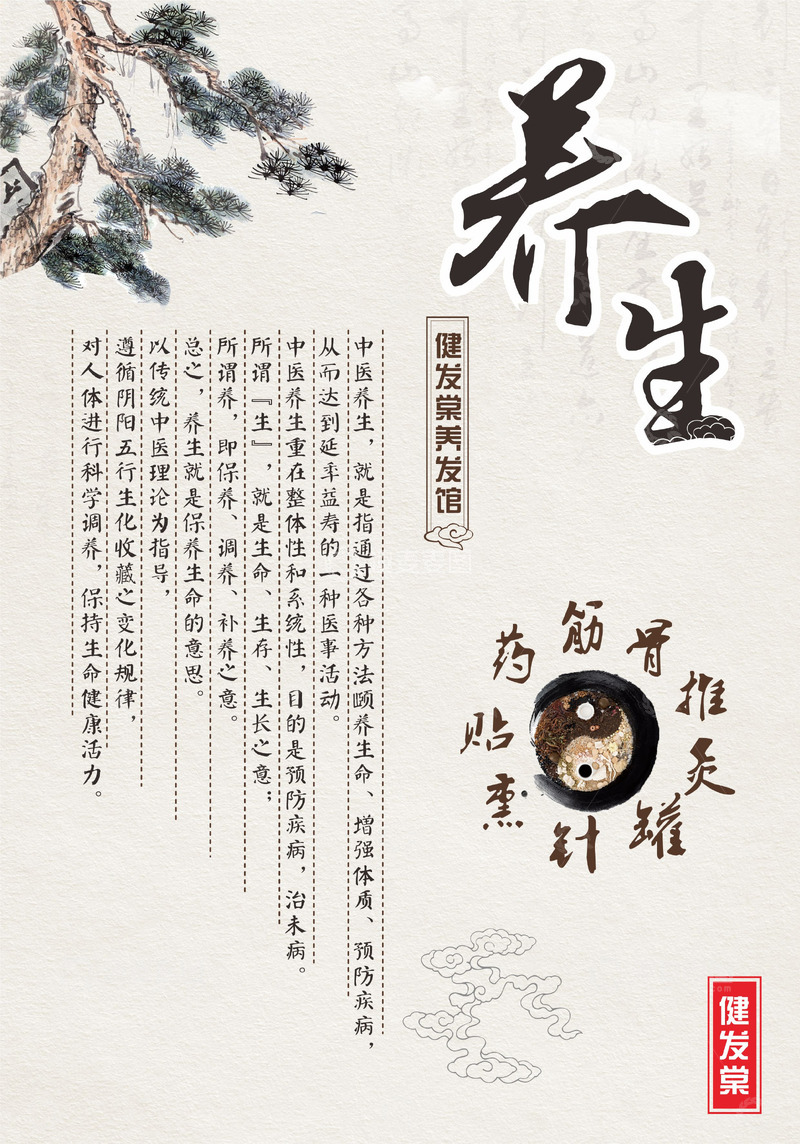 养生
健发棠养发馆
中医养生，就是指通过各种方法颐养生命、增强体质、预防疾病，
从而达到延年益寿的一种医事活动。
中医养生重在整体性和系统性，目的是预防疾病，治未病。
所谓『生』，就是生命、生存、生长之意；
所谓养，即保养、调养、补养之意。
总之，养生就是保养生命的意思。
以传统中医理论为指导，
遵循阴阳五行生化收藏之变化规律，
对人体进行科学调养，保持生命健康活力。
筋
骨
推
灸
罐
针
熏
贴
药
健发棠